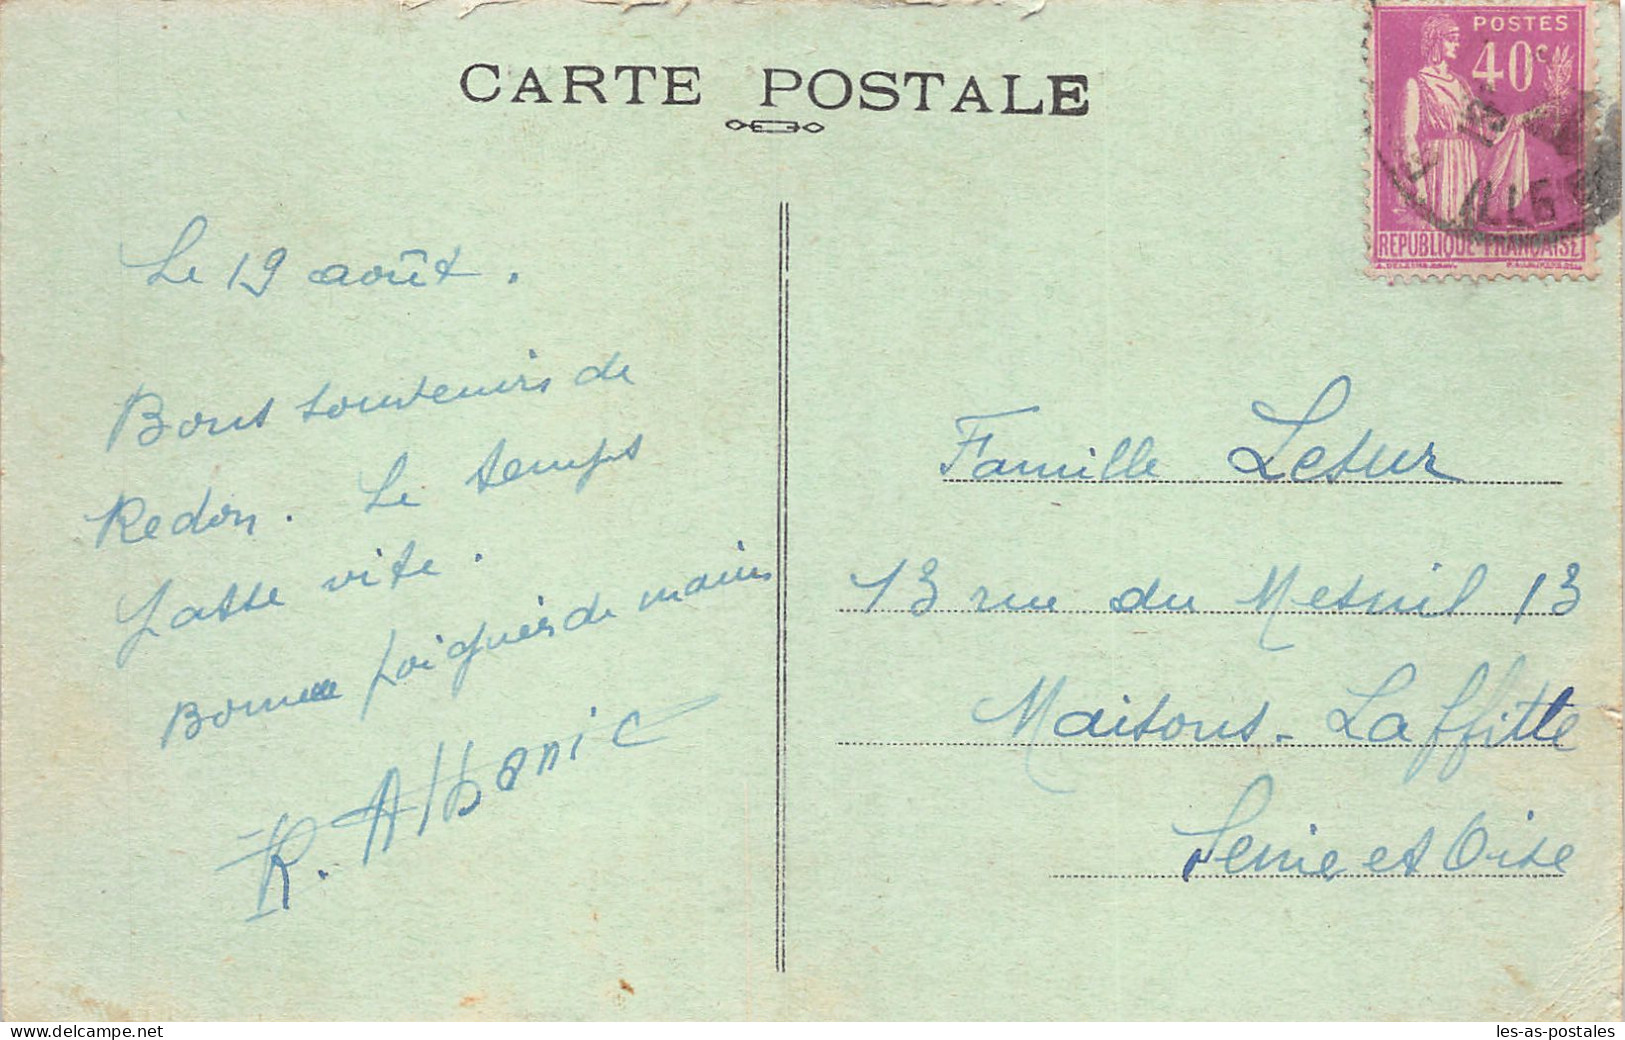 CARTE POSTALE
POSTES
40c
REPUBLIQUE FRANÇAISE
Le 19 août.
Bons souvenirs de
Redon. Le temps
passe vite.
Bonnes poignées de mains
R. Albanic
Famille Lesur
13 rue du Mesnil 13
Maisons-Laffitte
Seine et Oise
www.delcampe.net
les-as-postales